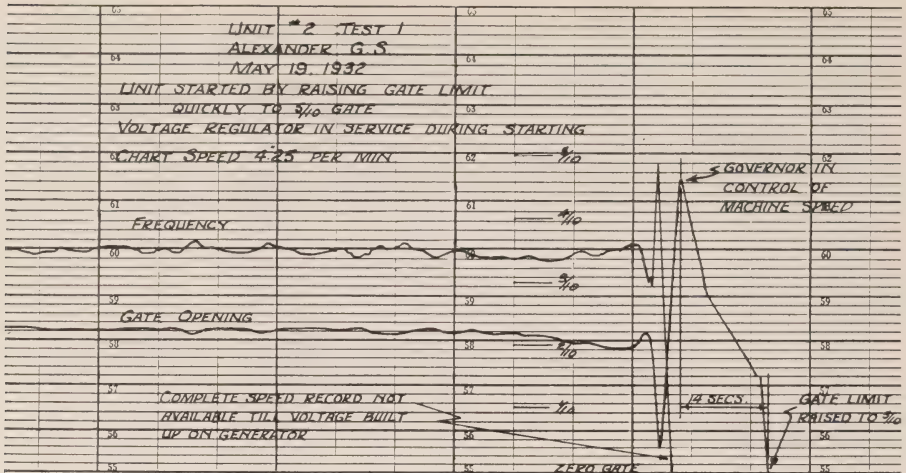 65 65 65
UNIT #2 TEST 1
ALEXANDER G.S.
MAY 19, 1932
64 64
UNIT STARTED BY RAISING GATE LIMIT
QUICKLY TO 5/10 GATE
63 63 63
VOLTAGE REGULATOR IN SERVICE DURING STARTING
CHART SPEED 4.25 PER MIN.
62 62
5/10
GOVERNOR IN
CONTROL OF
MACHINE SPEED
61 61
4/10
FREQUENCY
60 60 60
3/10
59 59 59
GATE OPENING
58 58
2/10
57 57 57
COMPLETE SPEED RECORD NOT
AVAILABLE TILL VOLTAGE BUILT
UP ON GENERATOR
1/10
14 SECS.
GATE LIMIT
RAISED TO 5/10
56 56
55 55 55
ZERO GATE